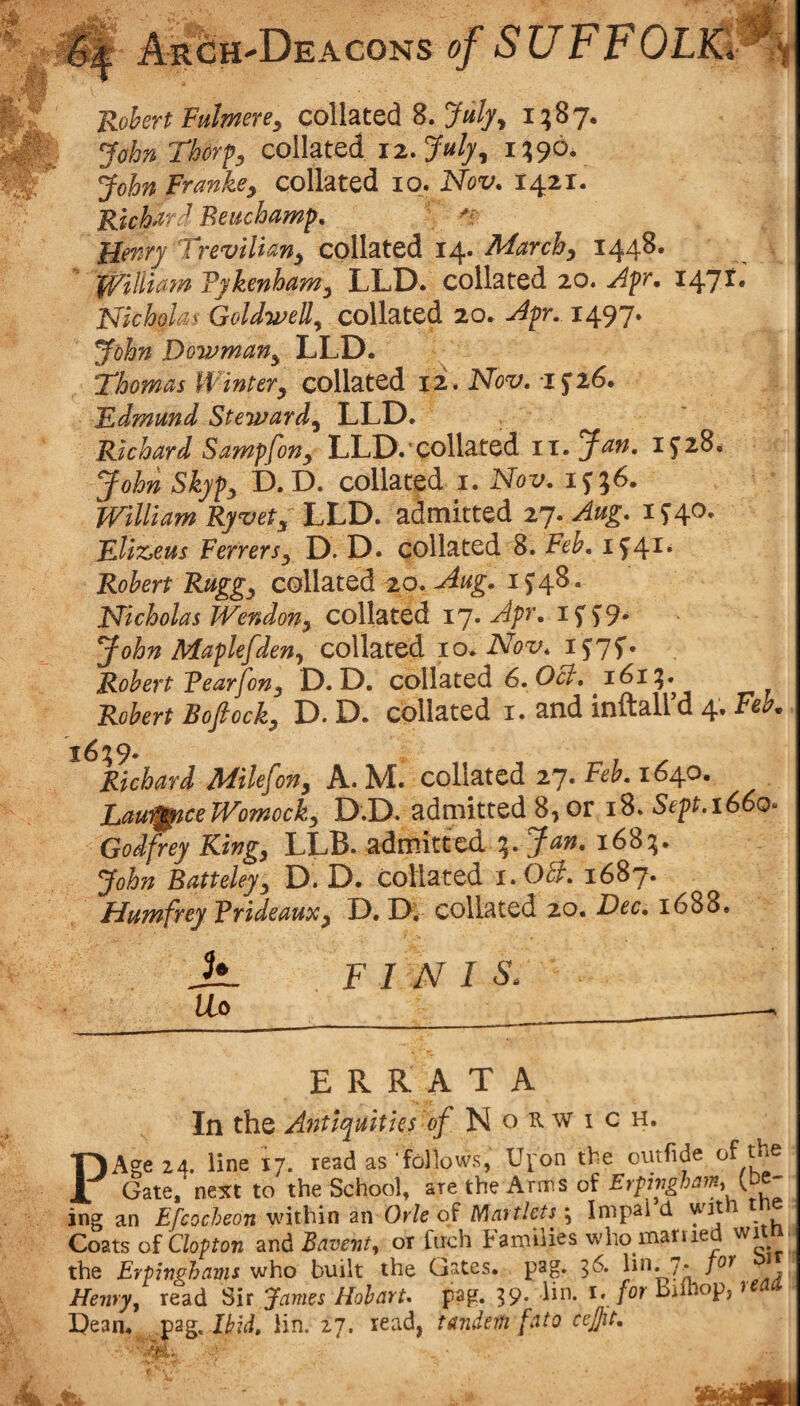 64 ARCH-DEACONS of SUFFOLK.
Robert Fulmere, collated 8. July, 1387.
John Thorp, collated 12. July, 1390.
John Franke, collated 10. Nov. 1421.
Richard Beuchamp.
Henry Trevilian, collated 14. March, 1448.
William Pykenham, LLD. collated 20. Apr. 1471.
Nicholas Goldwell, collated 20. Apr. 1497.
John Dowman, LLD.
Thomas Winter, collated 12. Nov. 1526.
Edmund Steward, LLD.
Richard Sampſon, LLD. collated 11. Jan. 1528.
John Skyp, D. D. collated 1. Nov. 1536.
William Ryvet, LLD. admitted 27. Aug. 1540.
Elizeus Ferrers, D. D. collated 8. Feb. 1541.
Robert Rugg, collated 20. Aug. 1548.
Nicholas Wendon, collated 17. Apr. 1559.
John Maplefden, collated 10. Nov. 1575.
Robert Pearſon, D. D. collated 6. Oct. 1613.
Robert Boſtock, D. D. collated 1. and inſtall'd 4. Feb.
1639.
Richard Mileſon, A. M. collated 27. Feb. 1640.
Laurence Womock, D.D. admitted 8, or 18. Sept. 1660.
Godfrey King, LLB. admitted 3. Jan. 1683.
John Batteley, D. D. collated 1. Oct. 1687.
Humfrey Prideaux, D. D. collated 20. Dec. 1688.
FINIS.
ERRATA
In the Antiquities of NORWICH.
PAge 24. line 17. read as follows, Upon the outſide of the
Gate, next to the School, are the Arms of Erpingham, (be-
ing an Eſcocheon within an Orle of Martlets; Impal'd with the
Coats of Clopton and Bavent, or ſuch Families who married with
the Erpinghams who built the Gates. pag. 36. lin. 7. for Sir
Henry, read Sir James Hobart. pag. 39. lin. 1. for Biſhop, read
Dean. pag. Ibid. lin. 27. read, tandem fato ceſſit.